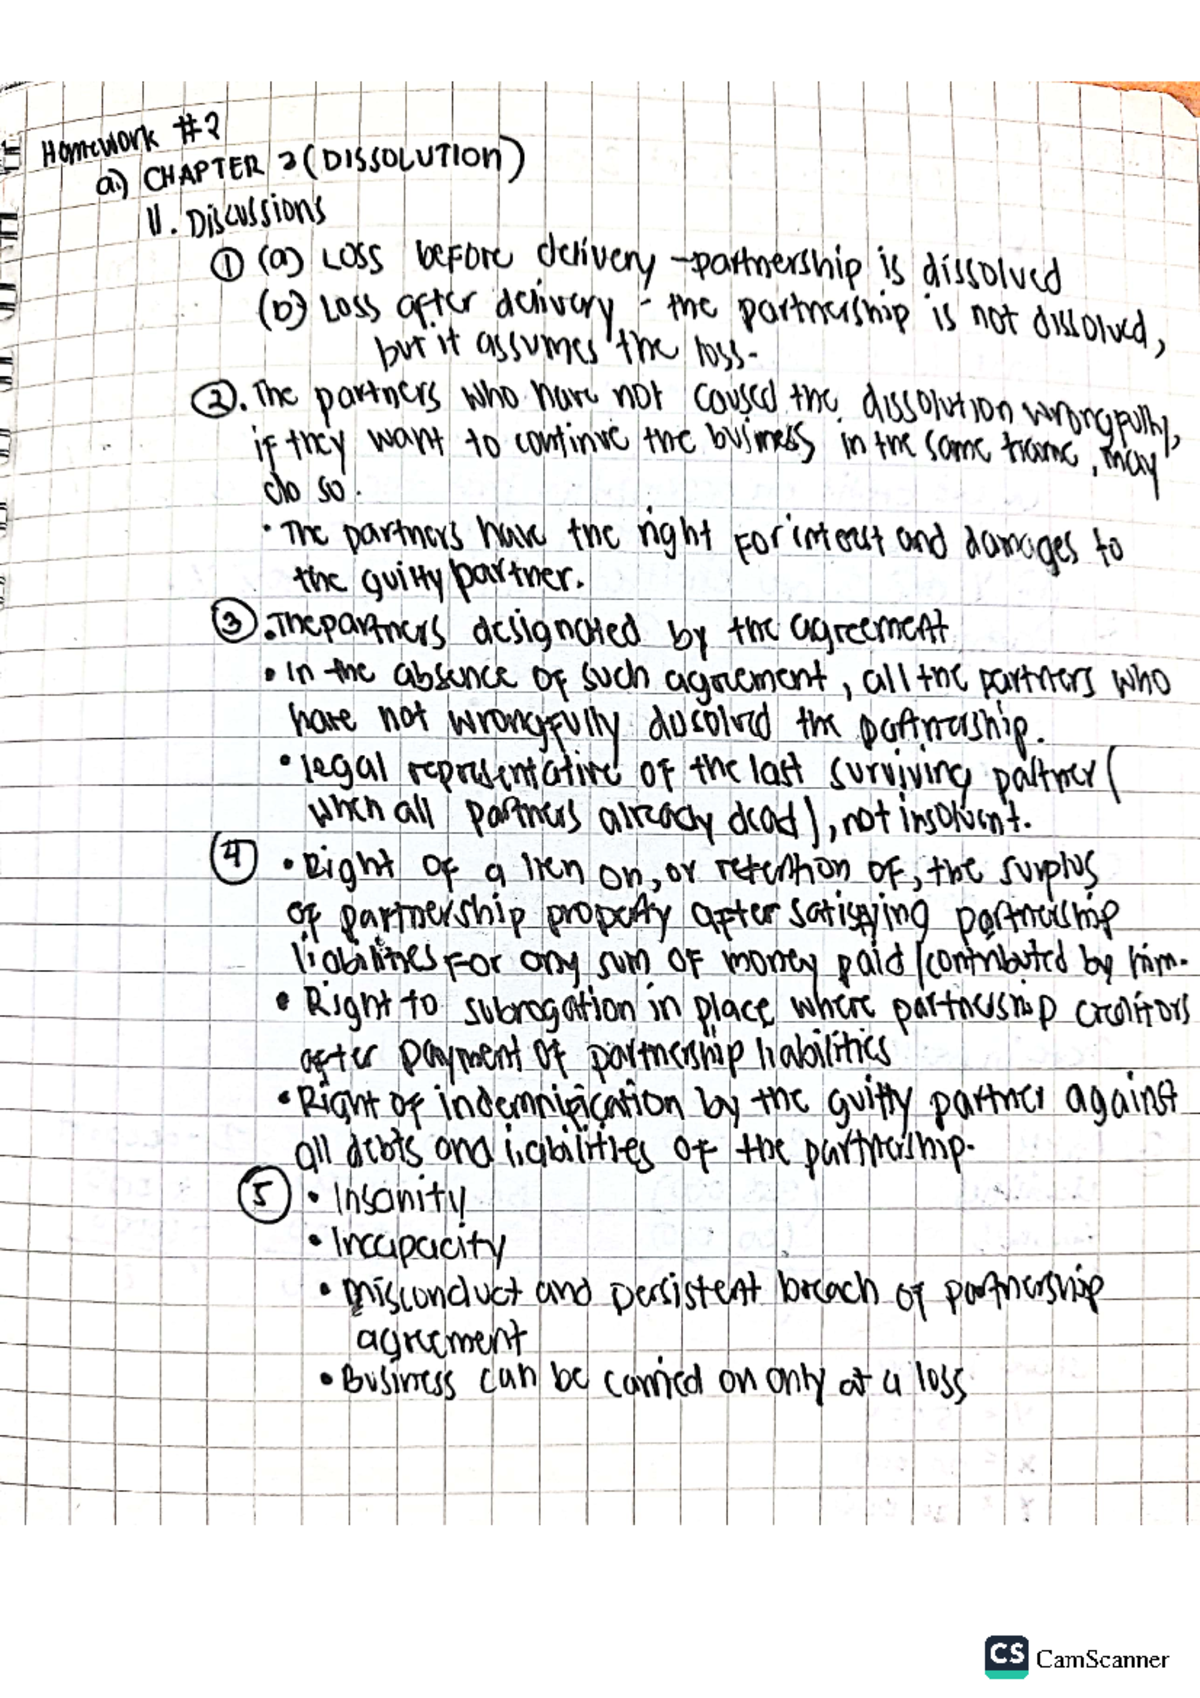 Homework #2
a.) CHAPTER 2 (DISSOLUTION)
II. Discussions
① (a) Loss before delivery - partnership is dissolved
(b) Loss after delivery - the partnership is not dissolved,
but it assumes the loss.
②. The partners who have not caused the dissolution wrongfully,
if they want to continue the business in the same name, may
do so.
• The partners have the right for interest and damages to
the guilty partner.
③. The partners designated by the agreement
• In the absence of such agreement, all the partners who
have not wrongfully dissolved the partnership.
• legal representative of the last surviving partner (
when all partners already dead), not insolvent.
④ • Right of a lien on, or retention of, the surplus
of partnership property after satisfying partnership
liabilities for any sum of money paid/contributed by him.
• Right to subrogation in place where partnership creditors
after payment of partnership liabilities
• Right of indemnification by the guilty partner against
all debts and liabilities of the partnership.
⑤ • Insanity
• Incapacity
• Misconduct and persistent breach of partnership
agreement
• Business can be carried on only at a loss
CS CamScanner